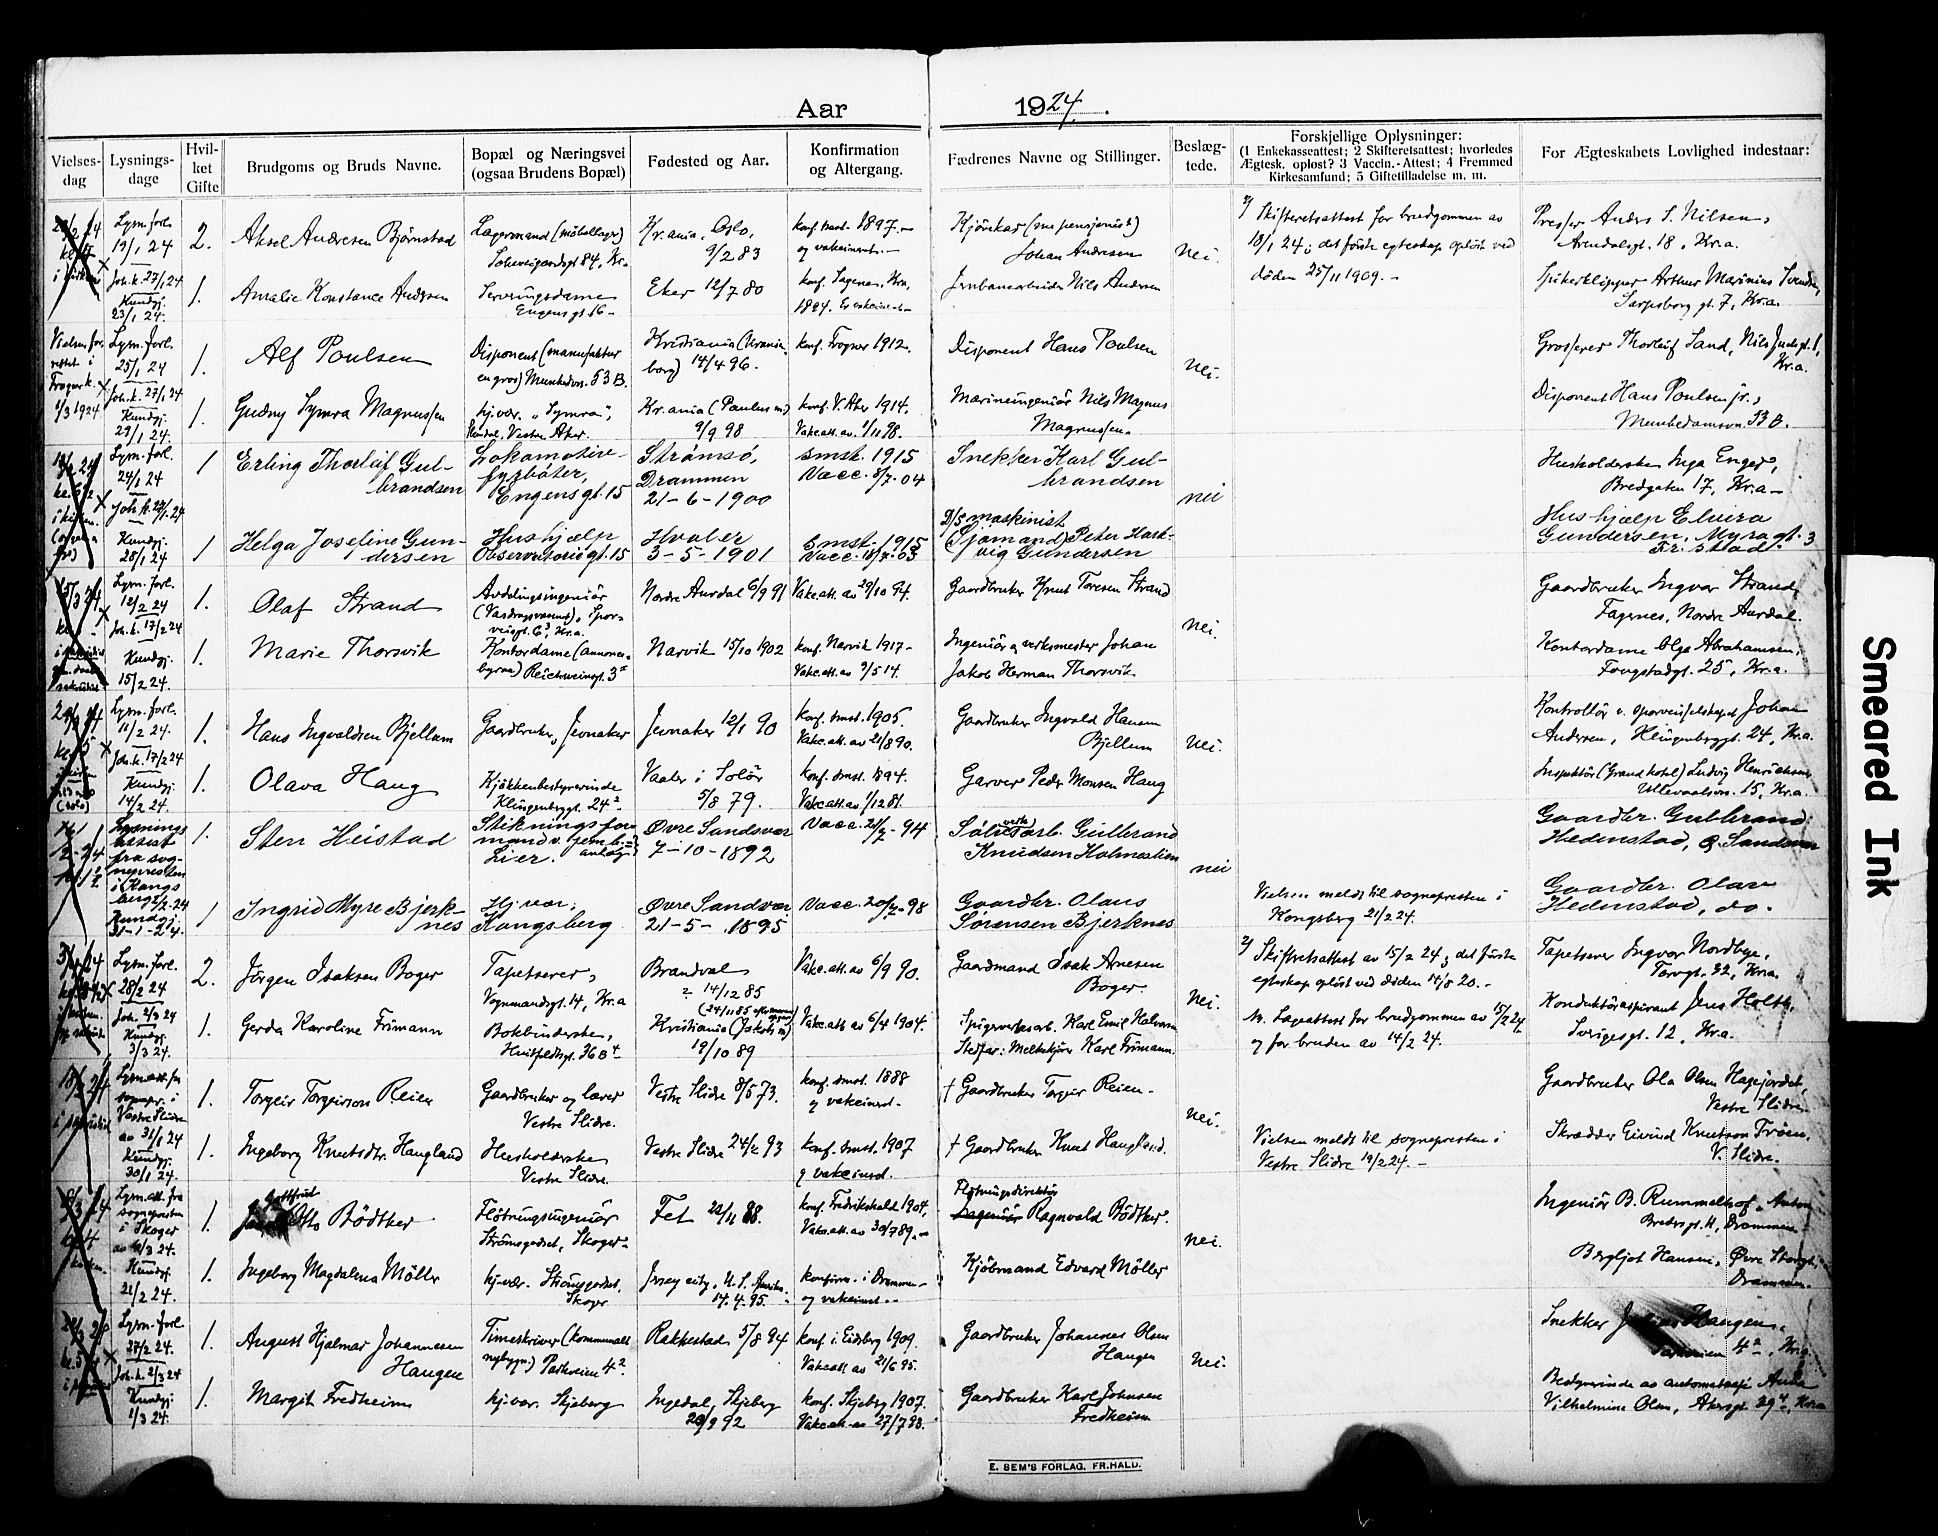 Aar 1924.
Vielses-
dag
Lysnings-
dage
Hvil-
ket
Gifte
Brudgoms og Bruds Navne.
Bopæl og Næringsvei
(ogsaa Brudens Bopæl)
Fødested og Aar.
Konfirmation
og Altergang.
Fædrenes Navne og Stillinger.
Beslæg-
tede.
Forskjellige Oplysninger:
(1 Enkekasseattest; 2 Skifteretsattest; hvorledes
Ægtesk. opløst? 3 Vaccin.-Attest; 4 Fremmed
Kirkesamfund; 5 Giftetilladelse m. m.
For Ægteskabets Lovlighed indestaar:
Lysn. forl.
19/1 24
Joh. k. 27/1 24
Kundgj.
23/1 24.
2.
Aksel Andresen Bjørnstad
Kr.ania, Oslo,
9/2 83
1897.
og vakcinert.
Johan Andresen
Nei.
2) Skifteretsattest for brudgommen av
18/1 24; det første egteskap opløst ved
døden 25/11 1909. -
Presser Anders S. Nilsen,
Arendalsgt. 18, Kr.a.
1.
Amalie Konstance Andersen
Serveringsdame
Engensgt 16 -
Eker 12/7 80
konf. Sagene, Kr.a,
1894.
Jernbanearbeider Nils Andersen
Spikerklipper Arthur Marinius Svendsen,
Sarpsborg gt. 7, Kr.a.
Lysn. forl.
25/1 24
Joh. k. 27/1 24
Kundgj.
29/1 24.
1/3 1924
1.
Alf Poulsen
Disponent (manufaktur
en gros) Munkedvn. 53 B.
Kristiania (Urania-
borg) 14/4 96.
konf. Frogner 1912.
Disponent Hans Poulsen
Nei.
Grosserer Thorleif Sand, Nils Juelsgt. 1,
Kr.a.
1.
Gudny Symra Magnussen
hj.vær. „Symra",
Vestre Aker.
Kr.ania (Paulus m)
9/9 98
konf. V. Aker 1914.
Vakc.att. av 1/11 98.
Marineingeniør Nils Magnus
Magnussen.
Disponent Hans Poulsen jr.,
Munkedamsvn. 53 B.
Lysn. forl.
24/1 24
Joh. k.
Kundgj.
28/1 24.
1
Erling Thorleif Gul-
brandsen
Lokomotiv-
fyrbøter,
Engensgt. 15
Strømsø,
Drammen
21-6-1900
smst. 1915
Vacc. 8/7-04
Snekker Karl Gul-
brandsen
nei
Husholderske Inga Enger,
Bredgaten 17, Kr.a -
1
Helga Joseline Gun-
dersen
Hushjælp
Observatoriegt. 15
Hvaler
3-5-1901
Smst. 1915
Vacc. 18/7-03
D/S maskinist
(Sjømand) Peter Hart-
vig Gundersen
Hushjælp Elvira
Gundersen, Myragt. 3
Fr.stad.
Lysn. forl.
12/2 24
Joh. k. 17/2 24
Kundgj.
15/2 24.
1.
Olaf Strand
Avdelingsingeniør
(Vasdragsvæsenet), Spor-
veisgt. 6³, Kr.a.
Nordre Aurdal 6/9 91
Vakc.att. av 29/10 94.
Gaardbruker Knut Toresen Strand
Nei.
Gaardbruker Ingvar Strand,
Fagernes, Nordre Aurdal.
1.
Marie Thorsvik
Kontordame (annonce-
byraa) Reichweinsgt. 3
Narvik 15/10 1902
konf. Narvik 1917 -
Vakc.att. av 9/5 14.
Ingeniør & verksmester Johan
Jakob Herman Thorsvik
Kontordame Olga Abrahamsen,
Tougstadgt. 25, Kr.a.
Lysn. forl.
11/2 24.
Joh. k. 17/2 24
Kundgj.
14/2 24.
1.
Hans Ingvaldsen Bjellum
Gaardbruker, Jevnaker
Jevnaker 12/1 90
konf. smst. 1905.
Vakc.att. av 21/8 90.
Gaardbruker Ingvald Hansen
Bjellum
Nei.
Kontrollør v. sporveiselskapet Johan
Andersen, Klingenberggt. 24, Kr.a.
1.
Olava Haug
Kjøkkenbestyrerinde
Klingenberggt. 24²
Vaaler i Solør
5/8 79.
konf. smst. 1894.
Vakc.att. av 1/12 81.
Garver Peder Monsen Haug
Inspektør (Grand hotel) Ludvig Henrichsen,
Ullevaalsvn. 15, Kr.a.
Lysnings
attest
fra sog-
nepresten
i Kongs
berg
Kundgj.
31-1-24.
1.
Sten Heistad
Stikningsfor-
mand v. jernb.
anlæg
Lier.
Øvre Sandsvær
7-10-1892
Vacc. 21/7-94
Sølvverksarb. Gulbrand
Knudsen Holmestien
nei
Gaardbr. Gulbrand
Hedenstad, Ø. Sandsvær
1
Ingrid Myre Bjerk-
nes
Hj. vær,
Kongsberg
Øvre Sandsvær
21-5-1895
Vacc. 98
Gaardbr. Olaus
Sørensen Bjerknes
Vielsen meldt til sognepresten i
Kongsberg 21/2 24.
Gaardbr. Olav
Hedenstad, do.
Lysn. forl.
28/2 24
Joh. 2/3 24
Kundgj.
3/3 24.
2.
Jörgen Isaksen Boger
Tapetserer,
Vognmandsgt. 14, Kr.a
Brandval
14/12 85
Vakc.att. av 6/9 90.
Gaardmand Isak Arnesen
Boger.
Nei.
2) Skifteretsattest av 15/2 24; det første
egteskap opløst ved døden 14/8 20. -
Lægeattest for brudgommen av 15/2 24
og for bruden av 14/2 24.
Tapetserer Ingvar Nordbye,
Torvgt. 32, Kr.a.
1.
Gerda Karoline Frimann
Bokbinderske,
Huitfeldtsgt. 36 B⁴
Kristiania (Jakob m)
19/10 89
Vakc.att. av 6/4 1904.
Spigerverksarb. Karl Emil Halvorsen
Stedfar: Melkekjører Karl Frimann.
Konduktøraspirant Jens Holth,
Sverigesgt. 12, Kr.a.
Vestre Slidre
av 31/1 24
Kundgj.
30/1 24.
1.
Torgeir Torgeirson Reien
Gaardbruker og lærer
Vestre Slidre.
Vestre Slidre 8/5 73.
konf. smst. 1888
og vakcinert.
† Gaardbruker Torgeir Reien -
Nei.
Vielsen meldt til sognepresten i
Vestre Slidre 19/2 24. -
Gaardbruker Ola Olsen Hagejordet
Vestre Slidre.
1.
Ingeborg Knutsdtr. Haugland
Husholderske
Vestre Slidre.
Vestre Slidre 24/2 93
konf. smst. 1907
og vakcinert.
† Gaardbruker Knut Haugland.
Skrædder Eivind Knutson Frøen,
V. Slidre.
Lysn.att. fra
sognepresten
i Skoger
Kundgj.
21/2 24.
1.
Gottfried
Otto Bödtker
Fløtningsingeniør
Strømsgodset, Skoger -
Fet 22/11 88.
konf. Fredrikshald 1904,
Vakc.att. av 30/7 89.
Fløtningsdirektør
Ingeniør Ragnvald Bödtker.
Nei.
Ingeniør B. Rummelhof,
Drammen
1.
Ingeborg Magdalena Möller
hj.vær. Strømsgodset,
Skoger
Jersey city, U.S. Amerika
14.4.95.
konfirm. i Drammen
og vakcinert.
Kjöbmand Edvard Möller
Bergljot Hansen, Øvre Storgt.
Drammen.
Lysn. forl.
27/2 24.
Joh. k. 2/3 24
Kundgj.
1/3 24.
1.
August Hjalmar Johannesen
Haugen
Timeskriver (kommunale
nybygn.) Parkveien 4²
Rakkestad 5/8 94
konf. i Eidsberg 1909.
Vakc.att. av 21/6 95.
Gaardbruker Johannes Olsen
Haugen
Nei.
Snekker Haugen,
4², Kr.a.
1.
Margit Fredheim
hj.vær. Skjeberg
Ingedal, Skjeberg
20/9 92
konf. Skjeberg 1907.
Vakc.att. av 27/7 93.
Gaardbruker Karl Johnsen
Fredheim
Bestyrerinde av automatkafé
Vilhelmine Olsen, Akersgt. 29⁴, Kr.a
E. SEM'S FORLAG. FR.HALD.
Smeared Ink